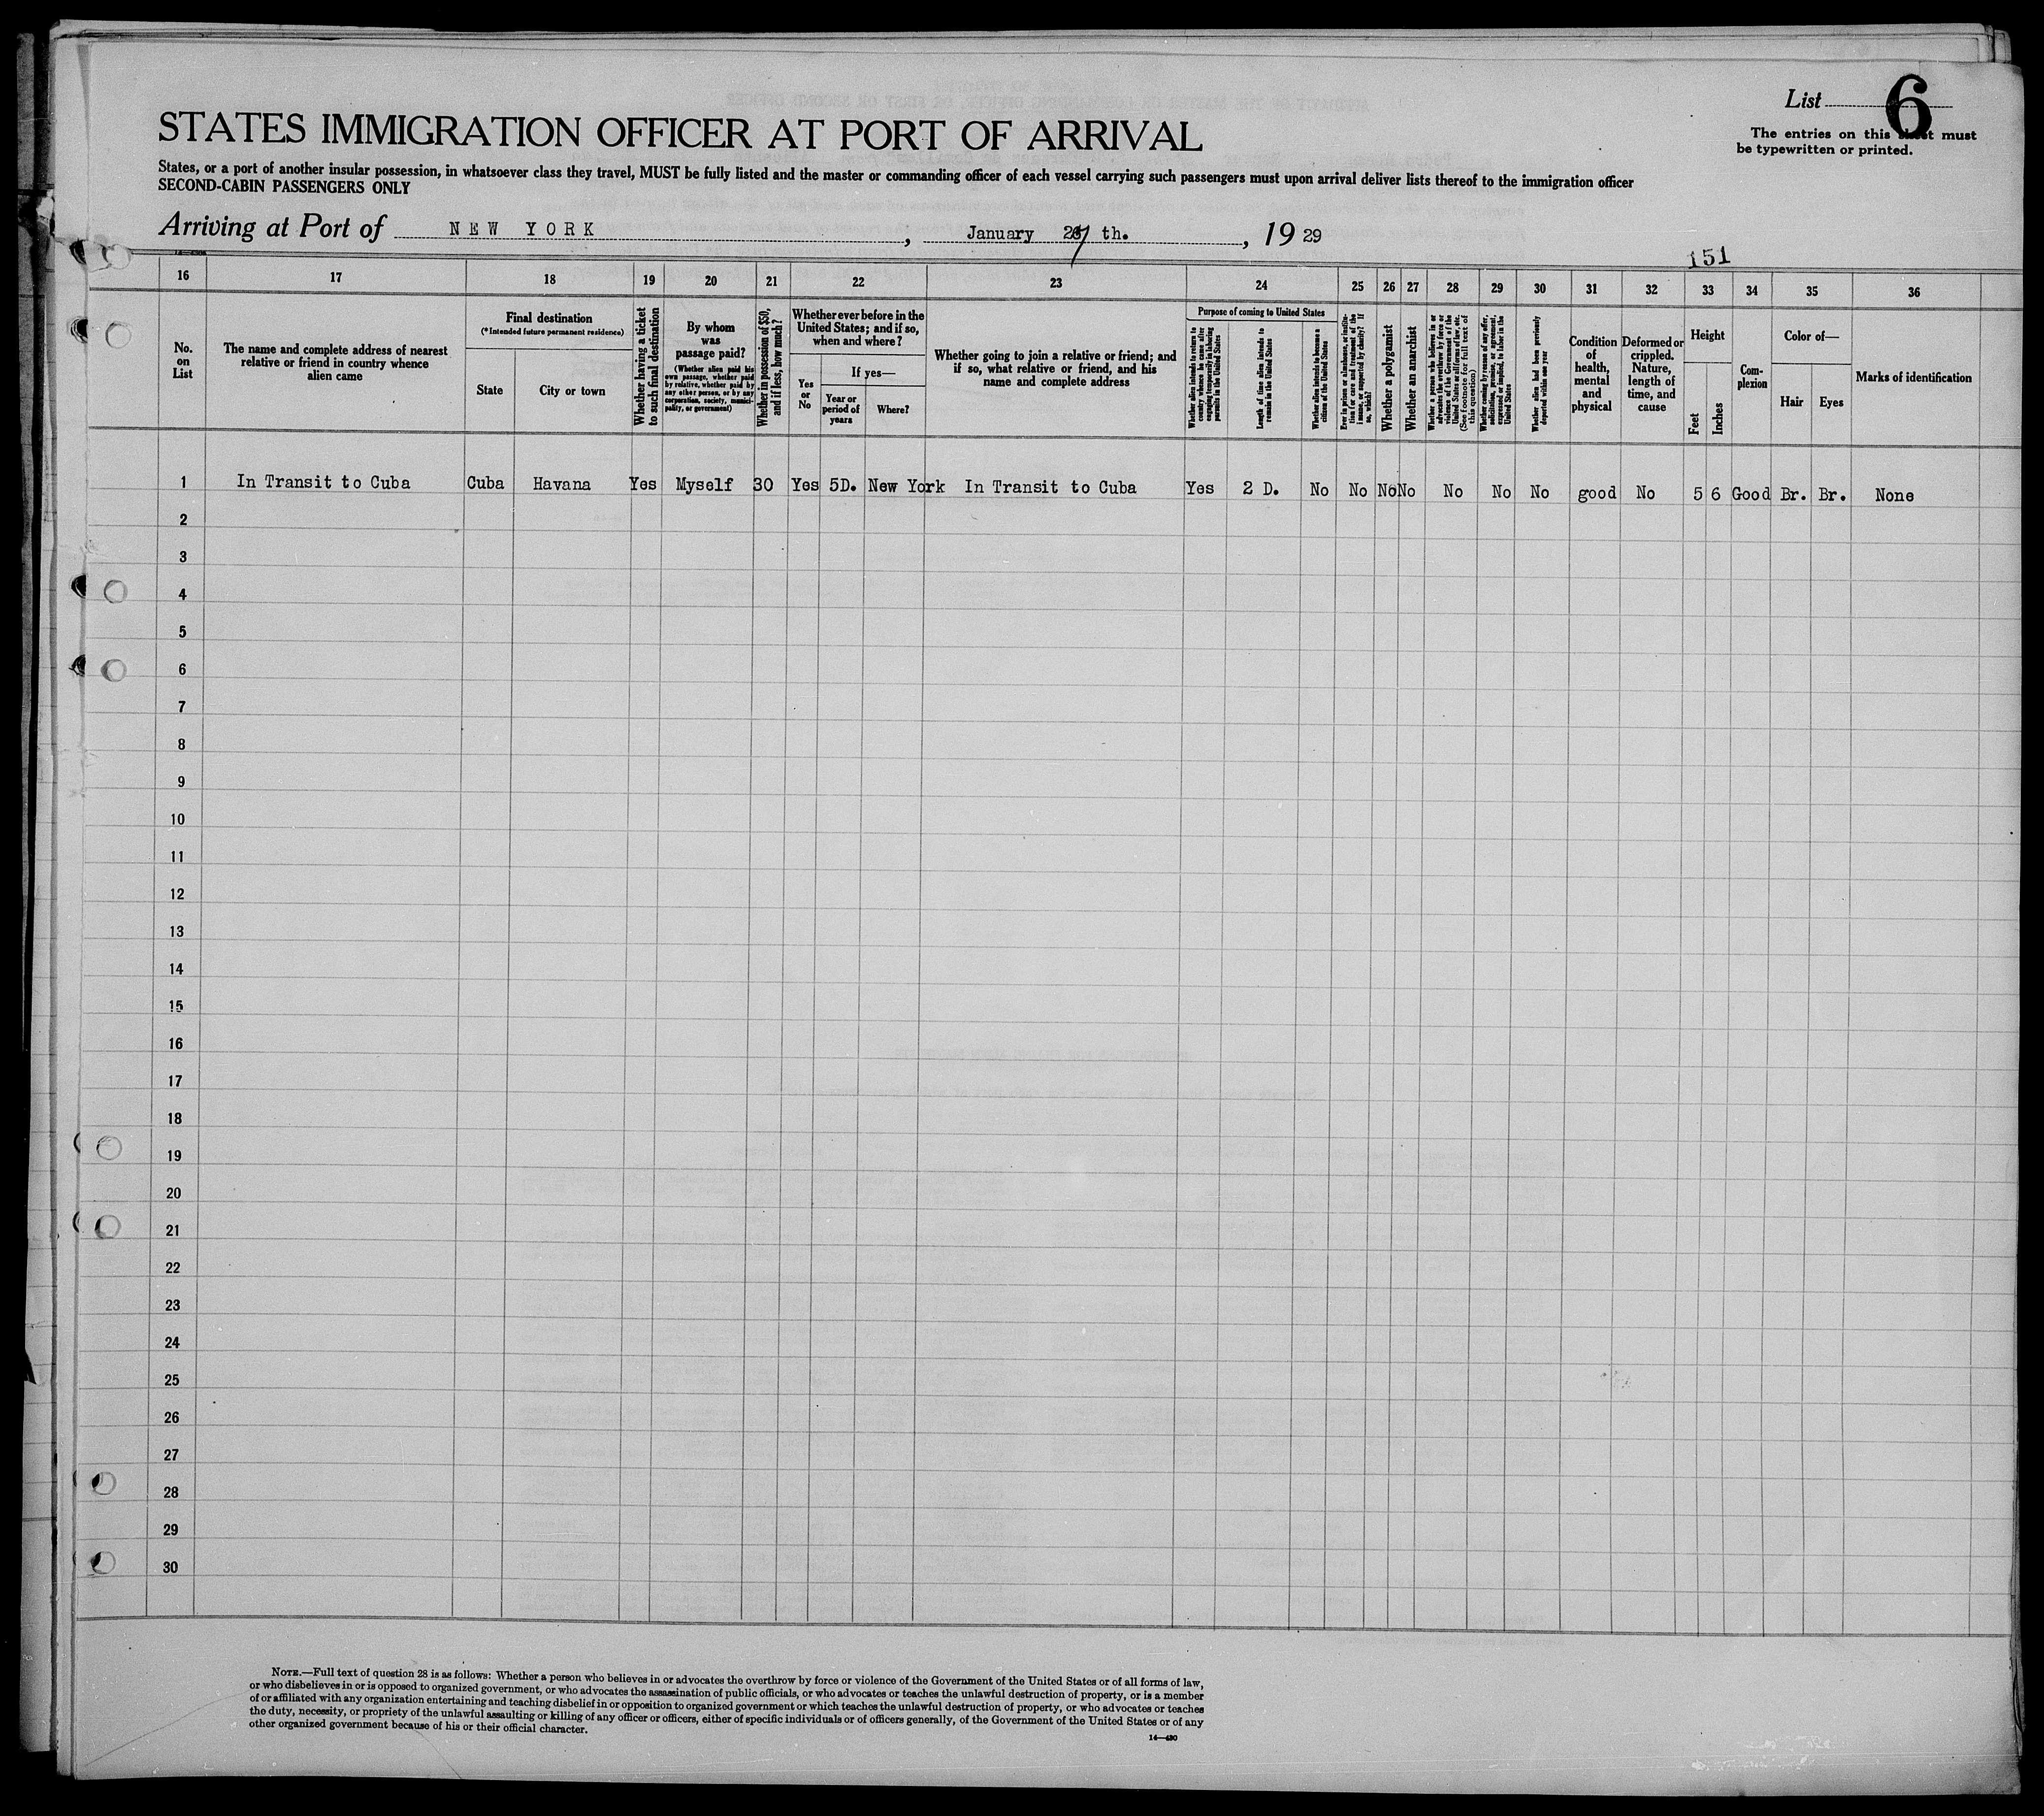 List 6
The entries on this sheet must
be typewritten or printed.
STATES IMMIGRATION OFFICER AT PORT OF ARRIVAL
States, or a port of another insular possession, in whatsoever class they travel, MUST be fully listed and the master or commanding officer of each vessel carrying such passengers must upon arrival deliver lists thereof to the immigration officer
SECOND-CABIN PASSENGERS ONLY
Arriving at Port of NEW YORK, January th., 19 29
151
16 17 18 19 20 21 22 23 24 25 26 27 28 29 30 31 32 33 34 35 36
No.
on
List
The name and complete address of nearest
relative or friend in country whence
alien came
Final destination
(*Intended future permanent residence)
State
City or town
Whether having a ticket
to such final destination
By whom
was
passage paid?
(Whether alien paid his
own passage, whether paid
by relative, whether paid by
any other person, or by any
corporation, society, munici-
pality, or government)
Whether in possession of $50,
and if less, how much?
Whether ever before in the
United States; and if so,
when and where?
Yes
or
No
If yes—
Year or
period of
years
Where?
Whether going to join a relative or friend; and
if so, what relative or friend, and his
name and complete address
Purpose of coming to United States
Whether alien intends to return to
country whence he came after
engaging temporarily in laboring
pursuits in the United States
Length of time alien intends to
remain in the United States
Whether alien intends to become a
citizen of the United States
Ever in prison or almshouse, or institu-
tion for care and treatment of the
insane, or supported by charity? If
so, which?
Whether a polygamist
Whether an anarchist
Whether a person who believes in or
advocates the overthrow by force or
violence of the Government of the
United States or all forms of law, etc.
(See footnote for full text of
this question)
Whether coming by reason of any offer,
solicitation, promise, or agreement,
expressed or implied, to labor in the
United States
Whether alien had been previously
deported within one year
Condition
of
health,
mental
and
physical
Deformed or
crippled.
Nature,
length of
time, and
cause
Height
Feet
Inches
Com-
plexion
Color of—
Hair
Eyes
Marks of identification
1 In Transit to Cuba Cuba Havana Yes Myself 30 Yes 5D. New York In Transit to Cuba Yes 2 D. No No No No No No No good No 5 6 Good Br. Br. None
2
3
4
5
6
7
8
9
10
11
12
13
14
15
16
17
18
19
20
21
22
23
24
25
26
27
28
29
30
NOTE.—Full text of question 28 is as follows: Whether a person who believes in or advocates the overthrow by force or violence of the Government of the United States or of all forms of law,
or who disbelieves in or is opposed to organized government, or who advocates the assassination of public officials, or who advocates or teaches the unlawful destruction of property, or is a member
of or affiliated with any organization entertaining and teaching disbelief in or opposition to organized government or which teaches the unlawful destruction of property, or who advocates or teaches
the duty, necessity, or propriety of the unlawful assaulting or killing of any officer or officers, either of specific individuals or of officers generally, of the Government of the United States or of any
other organized government because of his or their official character.
14—430